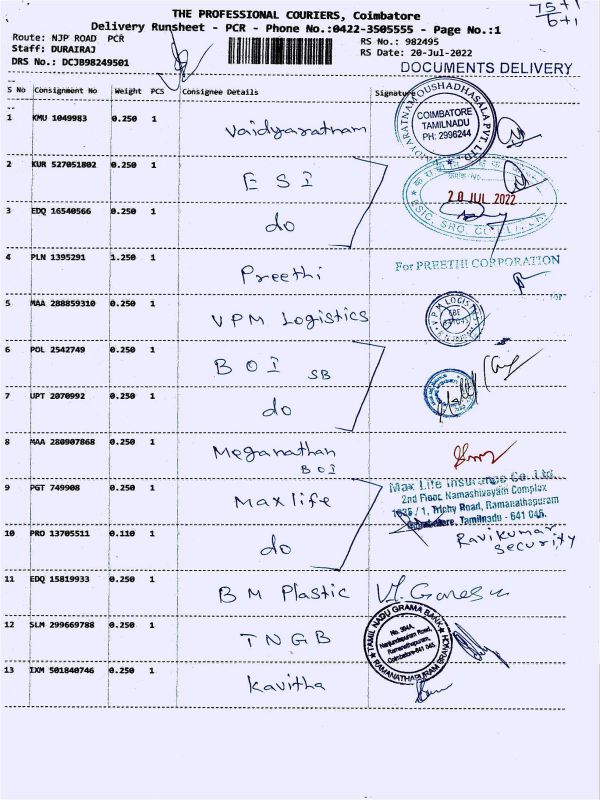 THE PROFESSIONAL COURIERS, Coimbatore
Delivery Runsheet - PCR - Phone No.:0422-3505555 - Page No.:1
75+1
6+1
Route: NJP ROAD PCR
Staff: DURAIRAJ
DRS No.: DCJB98249501
RS No.: 982495
RS Date: 20-Jul-2022
DOCUMENTS DELIVERY
S No Consignment No Weight PCS Consignee Details Signature
1 KMU 1049983 0.250 1 Vaidyaratnam
VAIDYARATNAM OUSHADHASALA PVT. LTD
COIMBATORE
TAMILNADU
PH: 2996244
2 KUR 527051802 0.250 1 ESI
20 JUL 2022
3 EDQ 16540566 0.250 1 do
ESIC, SRO,
4 PLN 1395291 1.250 1 Preethi
For PREETHI CORPORATION
5 MAA 288859310 0.250 1 VPM Logistics
VPM LOGIS
6 POL 2542749 0.250 1 BOI SB
7 UPT 2070992 0.250 1 do
8 MAA 280907868 0.250 1 Meganathan
BOI
9 PGT 749908 0.250 1 Maxlife
Max Life Insurance Co. Ltd.
2nd Floor, Namashivayam Complex
1035 / 1, Trichy Road, Ramanathapuram
Coimbatore, Tamilnadu - 641 045.
10 PRO 13705511 0.110 1 do
Ravikumar
Security
11 EDQ 15819933 0.250 1 BM Plastic
12 SLM 299669788 0.250 1 TNGB
TAMIL NADU GRAMA BANK
No. 394A,
Nanjundapuram Road,
Ramanathapuram,
Coimbatore-641 045.
RAMANATHAPURAM BRANCH
13 IXM 501840746 0.250 1 Kavitha